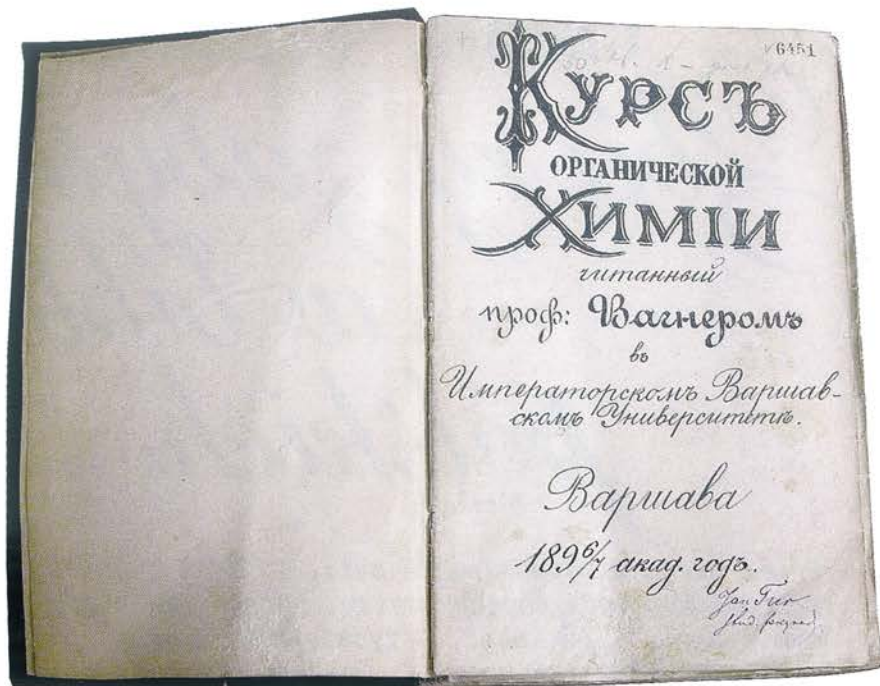 6451
Курсъ
органической
Химіи
читанный
проф: Вагнеромъ
въ
Императорскомъ Варшав-
скомъ Университетѣ.
Варшава
1896/7 акад. годъ.
Jan Tur